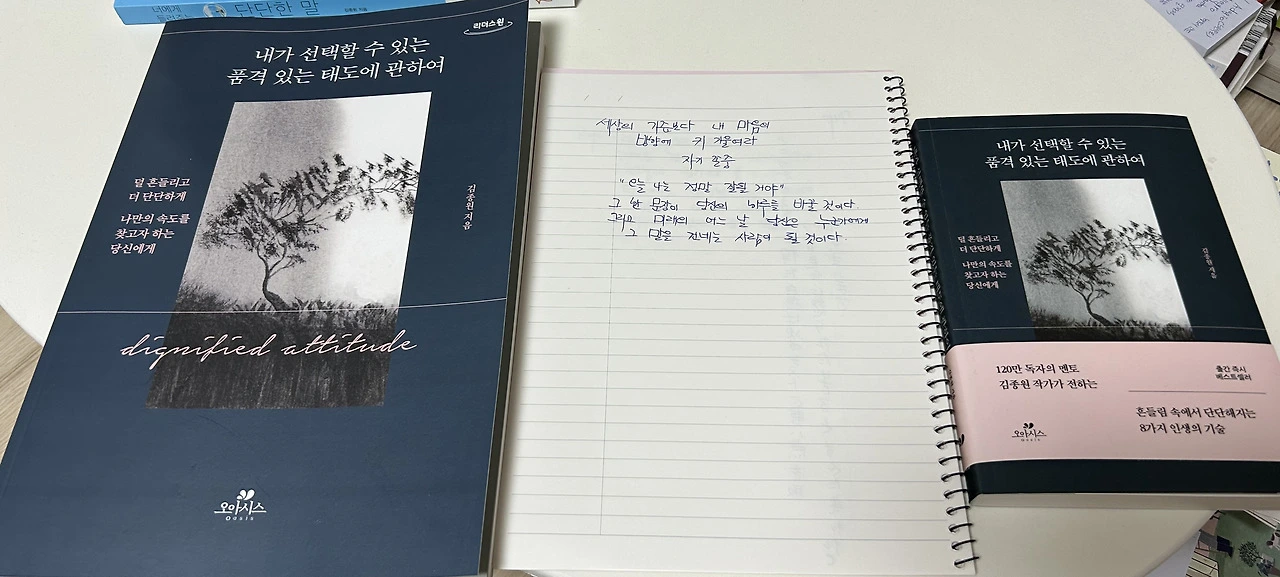 너에게
들려주는
단단한 말
김종원 지음
리더스원
내가 선택할 수 있는
품격 있는 태도에 관하여
덜 흔들리고
더 단단하게
나만의 속도를
찾고자 하는
당신에게
김종원 지음
dignified attitude
오아시스
Oasis
세상의 기준보다 내 마음의
방향에 귀 기울여라
자기 존중
"오늘 나는 정말 잘될 거야"
그 한 문장이 당신의 하루를 바꿀 것이다.
그리고 미래의 어느 날 당신은 누군가에게
그 말을 건네는 사람이 될 것이다.
내가 선택할 수 있는
품격 있는 태도에 관하여
덜 흔들리고
더 단단하게
나만의 속도를
찾고자 하는
당신에게
김종원 지음
120만 독자의 멘토
김종원 작가가 전하는
출간 즉시
베스트셀러
흔들림 속에서 단단해지는
8가지 인생의 기술
오아시스
Oasis